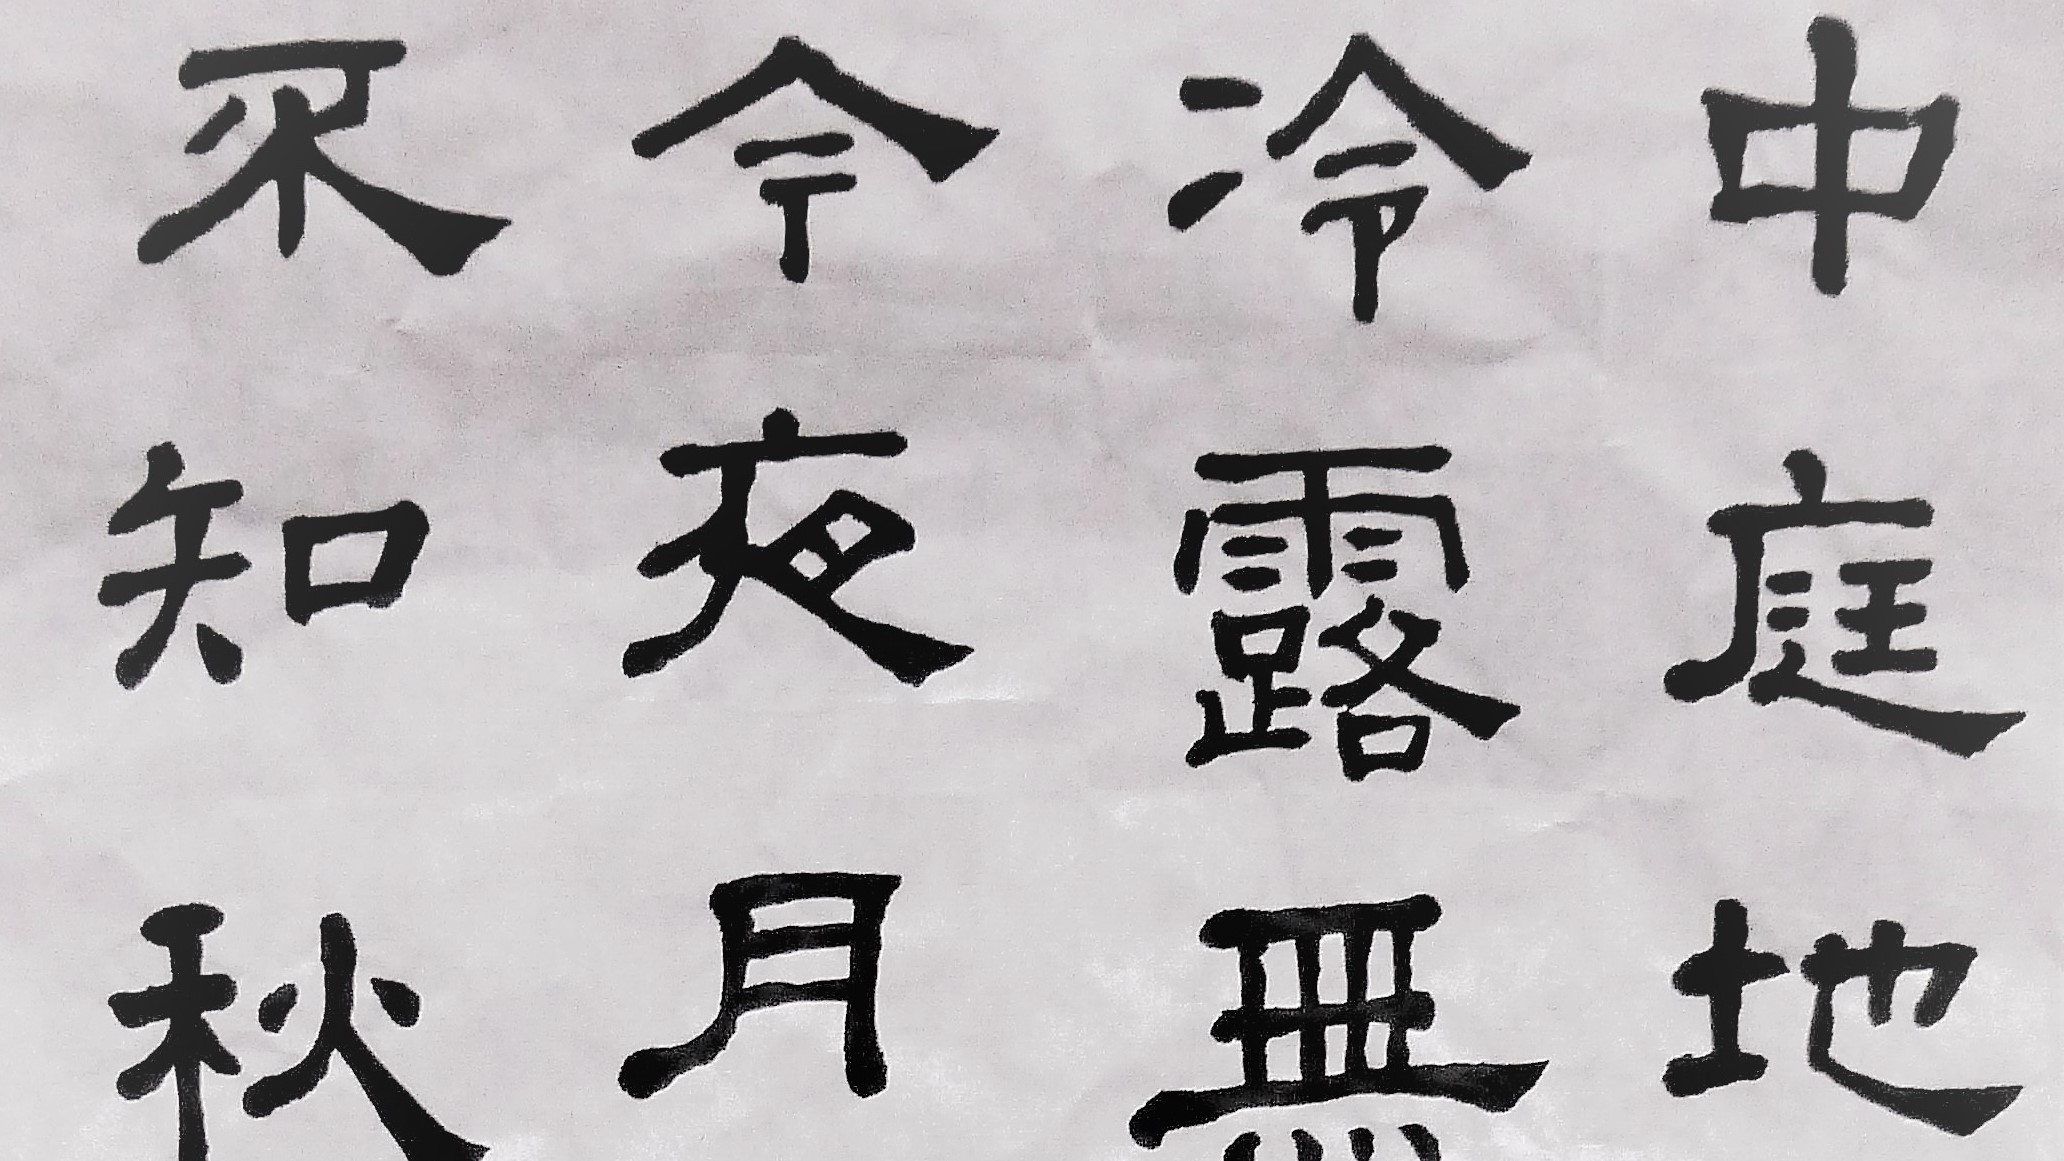 中庭地
冷露無
今夜月
不知秋